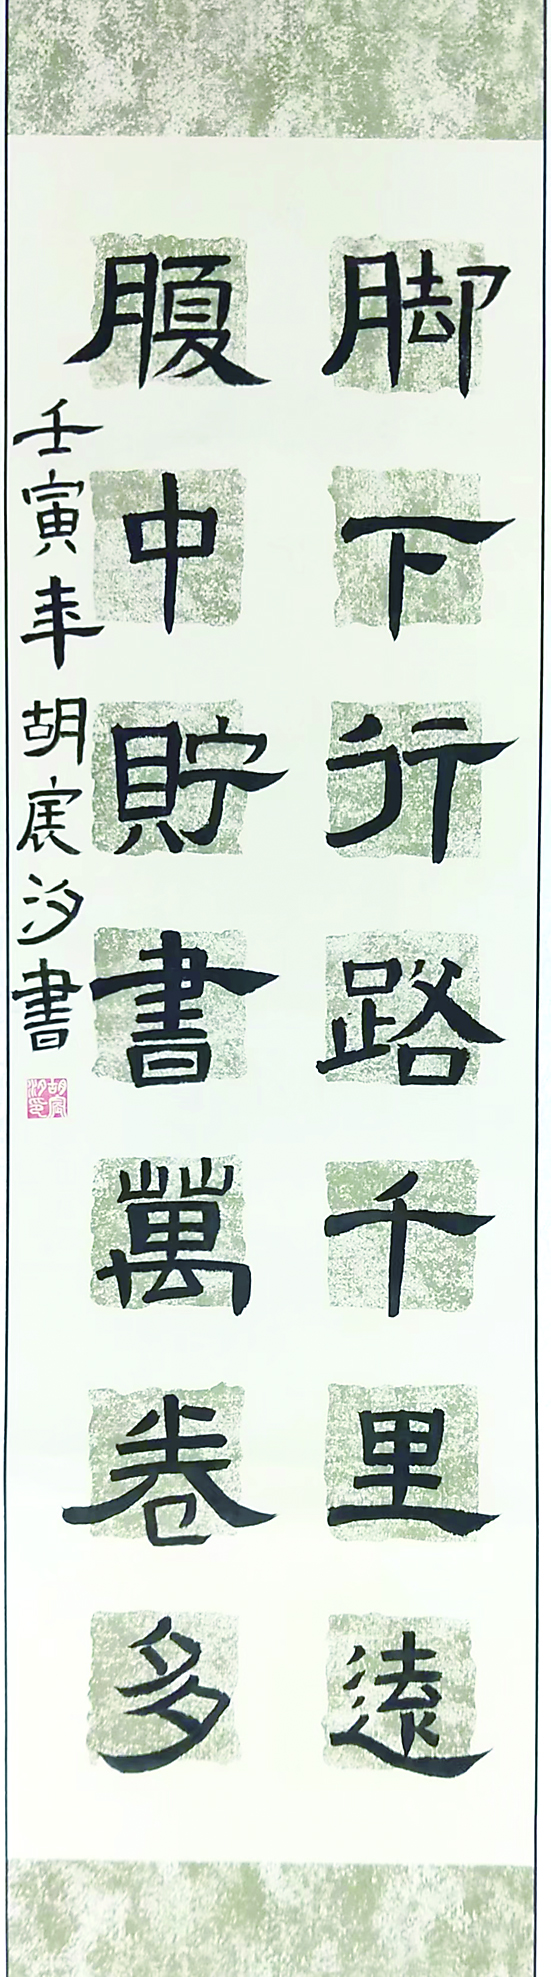 脚下行路千里遠
腹中貯書萬卷多
壬寅年胡宸汐書
胡宸汐印